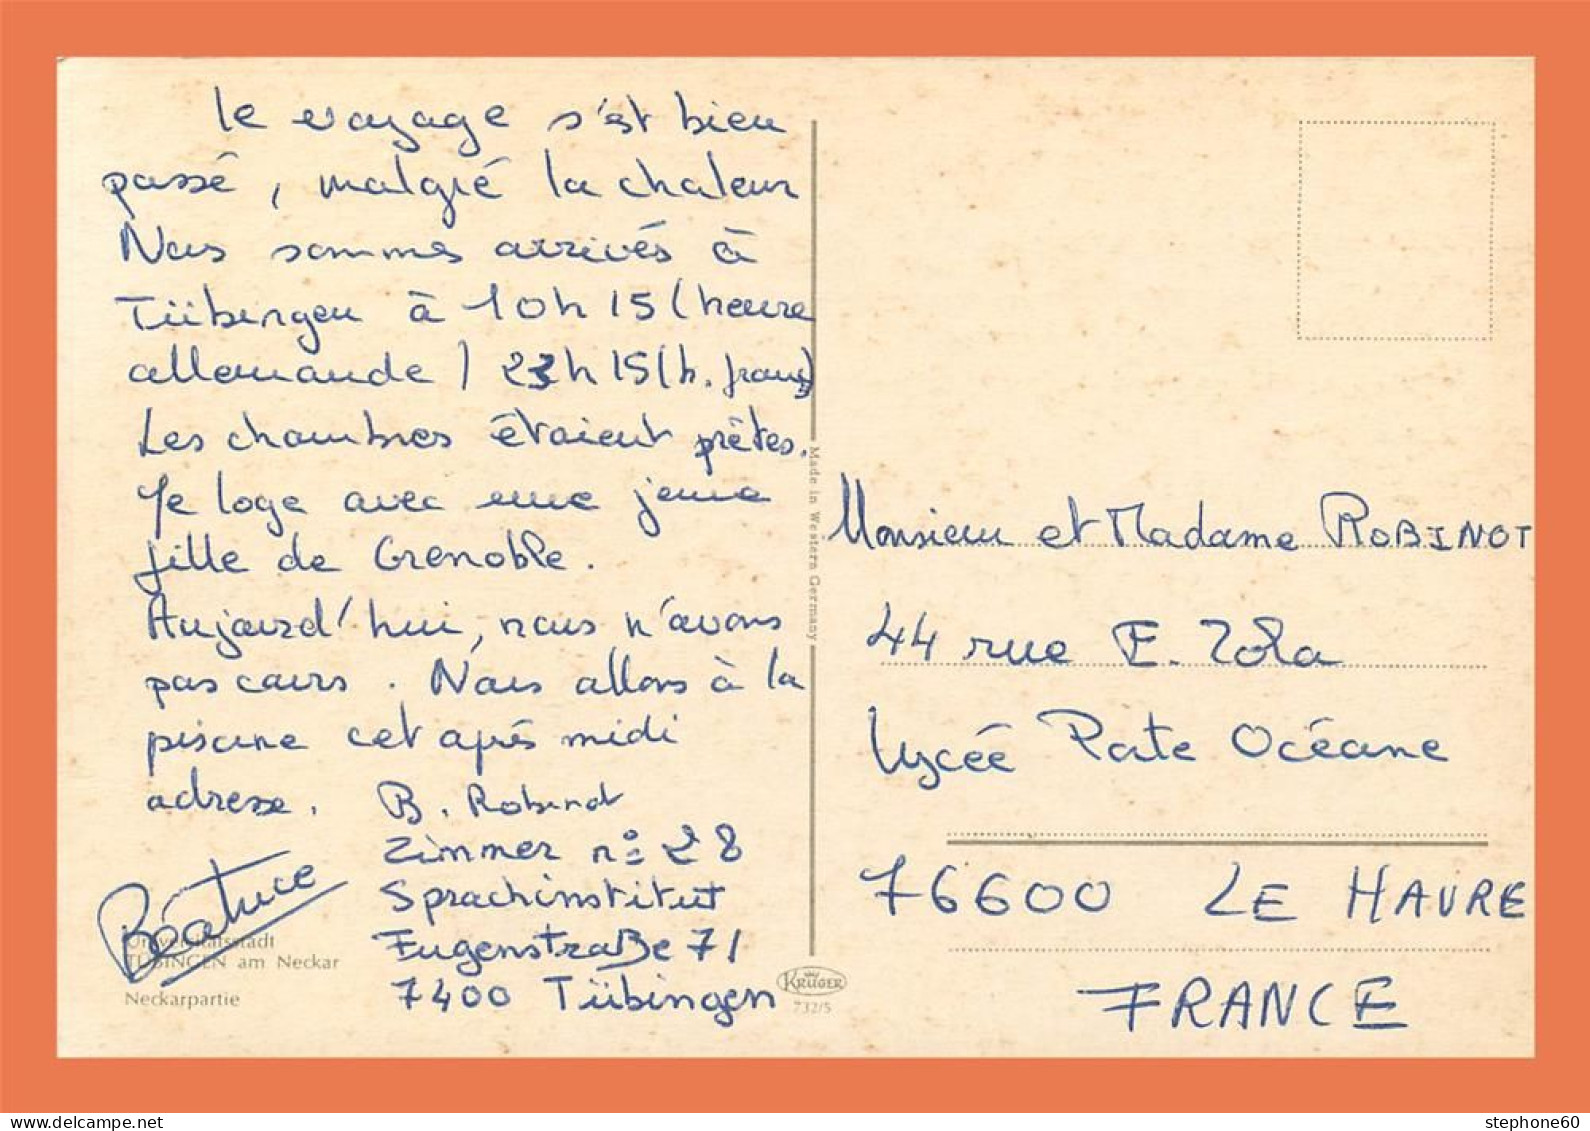 le voyage s'est bien
passé, malgré la chaleur
Nous sommes arrivés à
Tübingen à 10h 15 (heure
allemande) 23h15 (h. franç)
Les chambres étaient prêtes.
Je loge avec une jeune
fille de Grenoble.
Aujourd'hui, nous n'avons
pas cours. Nous allons à la
piscine cet après midi
adresse. B. Robinot
Zimmer n° 28
Sprachinstitut
Eugenstraße 71
7400 Tübingen
Béatrice
Universitätsstadt
TÜBINGEN am Neckar
Neckarpartie
Made in Western Germany
KRÜGER
732/5
Monsieur et Madame ROBINOT
44 rue E. Zola
Lycée Porte Océane
76600 LE HAVRE
FRANCE
stephone60